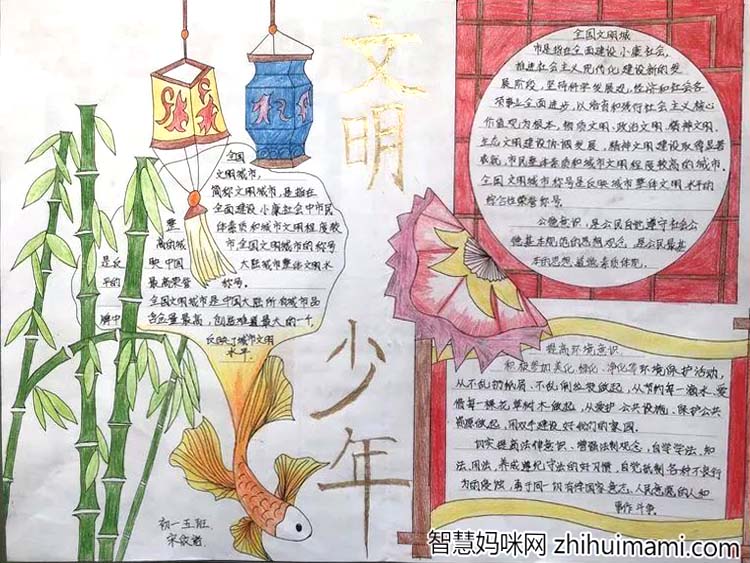 文明
少年
全国
文明城市,
简称文明城市,是指在
全面建设小康社会中市民
整体素质和城市文明程度较
高的城市。全国文明城市的称号
是反映中国大陆城市整体文明水
平的最高荣誉称号。
全国文明城市是中国大陆所有城市品
牌中含金量最高,创建难度最大的一个,
反映了城市文明
水平。
初一五班
全国文明城
市是指在全面建设小康社会,
推进社会主义现代化建设新的发
展阶段,坚持科学发展观,经济和社会各
项事业全面进步,以培育和践行社会主义核心
价值观为根本,物质文明、政治文明、精神文明、
生态文明建设协调发展,精神文明建设取得显著
成就,市民整体素质和城市文明程度较高的城市。
全国文明城市称号是反映城市整体文明水平的
综合性荣誉称号。
公德意识,是公民自觉遵守社会公
德基本规范的思想观念,是公民最基
本的思想道德素质体现。
提高环境意识
积极参加美化、绿化、净化等环境保护活动,
从不乱扔纸屑、不乱倒垃圾做起,从节约每一滴水、爱
惜每一棵花草树木做起,从爱护公共设施、保护公共
资源做起,用双手建设好他们的家园。
切实提高法律意识、增强法制观念,自学学法、知
法、用法,养成遵纪守法的好习惯,自觉抵制各种不良行
为的侵蚀,勇于同一切有悖国家意志、人民意愿的人和
事作斗争。
智慧妈咪网 zhihuimami.com